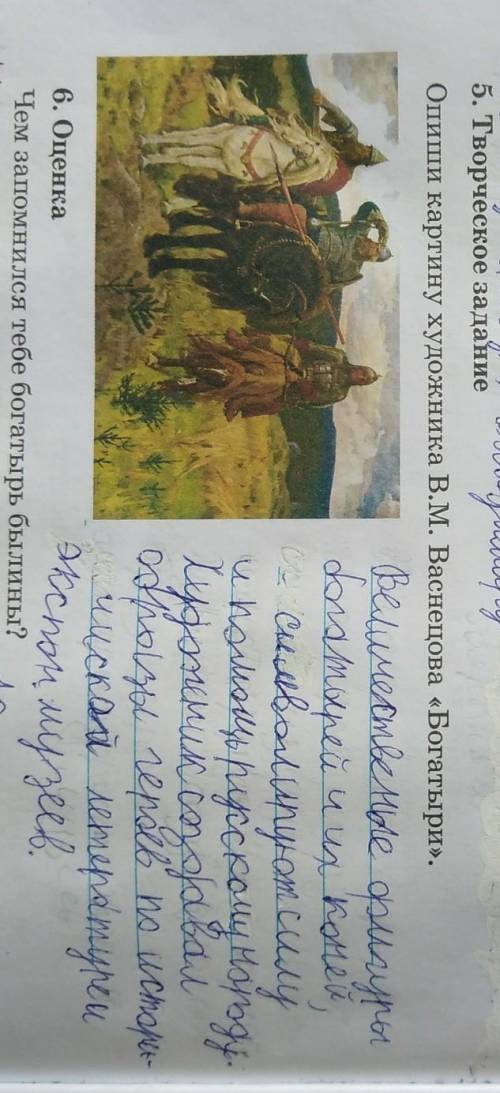 5. Творческое задание
Опиши картину художника В.М. Васнецова «Богатыри».
Величественые фигуры
богатырей и их коней,
символизируют силу
и помощь русскому народу.
Художник создавал
образы героев по истори-
чиской летературе и
экспон. музеев.
6. Оценка
Чем запомнился тебе богатырь былины?